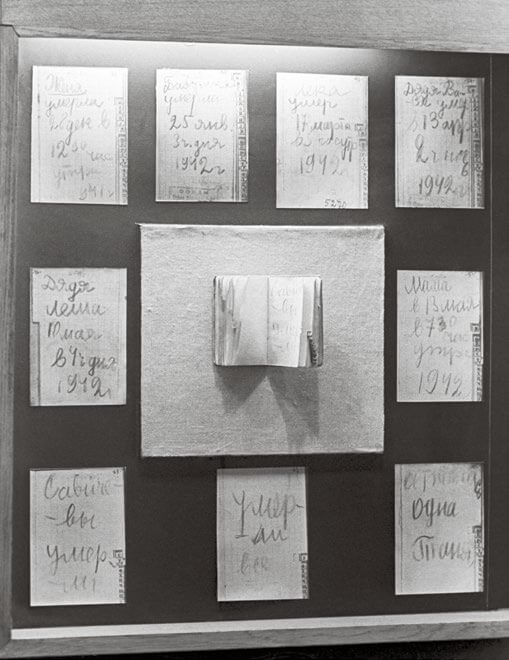 Женя
умерла
28 дек в
12 30 час
утра
1941 г
Бабушка
умерла
25 янв
3 ч дня
1942 г
Лека
умер
17 марта
1942 г
5270
Дядя Ва-
ся умер
в 13 апр
2 ч ноч
1942 г
Дядя
Леша
10 мая
в 4 ч дня
1942 г
Савиче
вы
Мама
в 13 мая
в 7 30
час
утра
1942
Савиче-
-вы
умер-
ли
умер-
-ли
все
осталась
одна
Таня